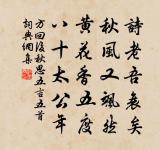 詩老吾衰矣
秋風又颯然
黃花香五度
八十太公年
方回後秋思五言五首
詞典網集